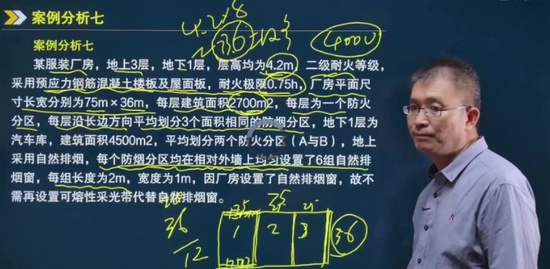 案例分析七
4.2
36
4000
案例分析七
某服装厂房，地上3层，地下1层，层高均为4.2m，二级耐火等级，
采用预应力钢筋混凝土楼板及屋面板，耐火极限0.75h，厂房平面尺
寸长宽分别为75m×36m，每层建筑面积2700m2，每层为一个防火
分区，每层沿长边方向平均划分3个面积相同的防烟分区，地下1层为
汽车库，建筑面积4500m2，平均划分两个防火分区（A与B），地上
采用自然排烟，每个防烟分区均在相对外墙上均匀设置了6组自然排
烟窗，每组长度为2m，宽度为1m，因厂房设置了自然排烟，故不
需再设置可熔性采光带代替自然排烟窗。
36
12
25 25 25
1 2 3 36